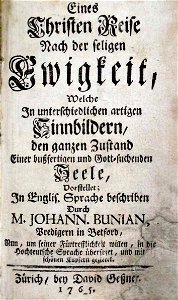 Eines
Christen Reise
Nach der seligen
Ewigkeit,
Welche
In unterschiedlichen artigen
Sinnbildern,
den ganzen Zustand
Einer bußfertigen und Gott-suchenden
Seele,
Vorstellet;
In Englis. Sprache beschriben
Durch
M. JOHANN. BUNIAN,
Predigern in Betford,
Nun, um seiner Fürtreflichkeit willen, in die
Hochteutsche Sprache übersetzt, und mit
schönen Kupfern gezieret.
Zürich, bey David Geßner.
1765.